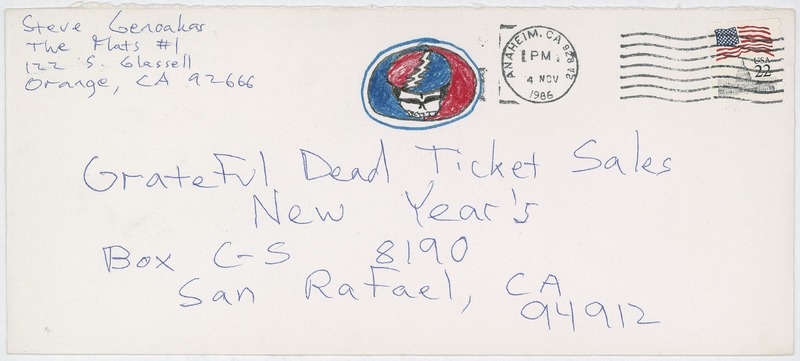 Steve Genoakas
The Flats #1
122 S. Glassell
Orange, CA 92666
ANAHEIM, CA 928 #2
PM
4 NOV
1986
USA
22
Grateful Dead Ticket Sales
New Year's
Box C-S 8190
San Rafael, CA
94912